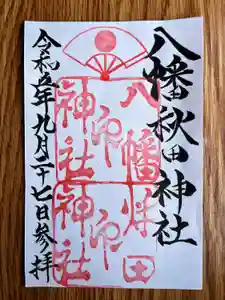 八幡秋田神社
八幡秋田
神社印
神社印
令和五年九月二十七日参拝